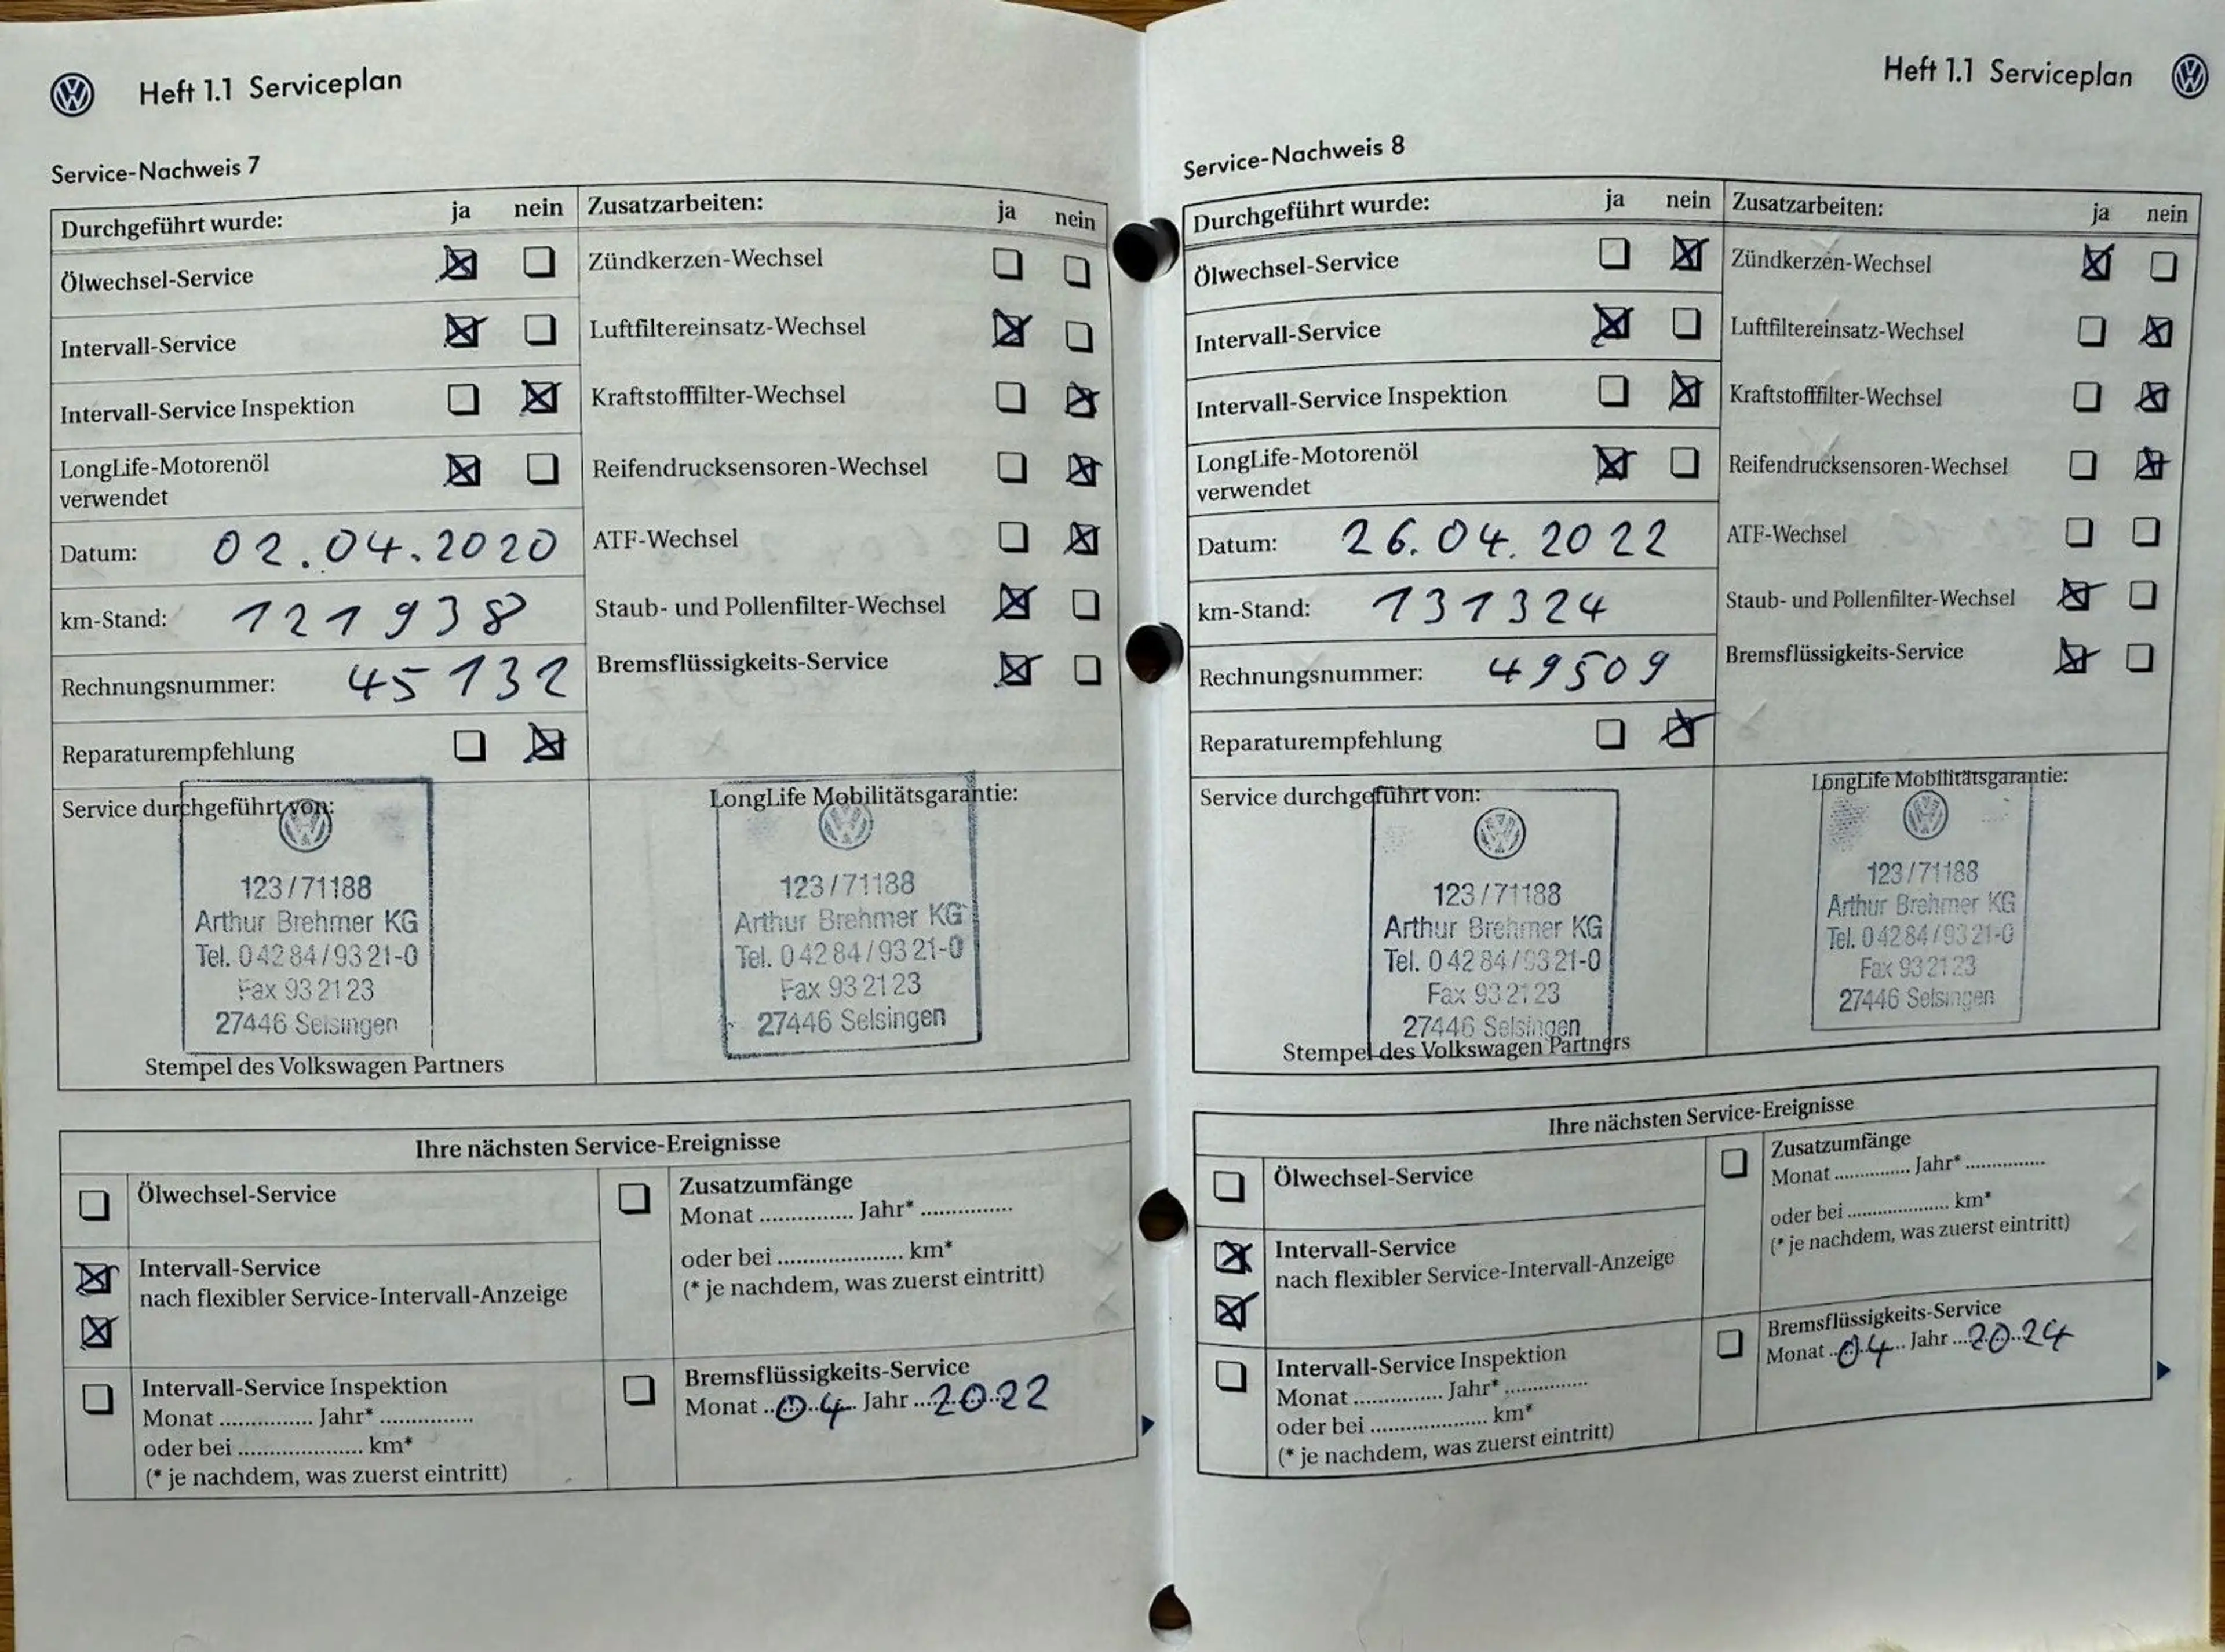 Heft 1.1 Serviceplan
Service-Nachweis 7
Durchgeführt wurde: ja nein
Ölwechsel-Service
Intervall-Service
Intervall-Service Inspektion
LongLife-Motorenöl
verwendet
Datum: 02.04.2020
km-Stand: 121938
Rechnungsnummer: 45132
Reparaturempfehlung
Zusatzarbeiten: ja nein
Zündkerzen-Wechsel
Luftfiltereinsatz-Wechsel
Kraftstofffilter-Wechsel
Reifendrucksensoren-Wechsel
ATF-Wechsel
Staub- und Pollenfilter-Wechsel
Bremsflüssigkeits-Service
Service durchgeführt von:
123/71188
Arthur Brehmer KG
Tel. 0 42 84/93 21-0
Fax 93 21 23
27446 Selsingen
Stempel des Volkswagen Partners
LongLife Mobilitätsgarantie:
123/71188
Arthur Brehmer KG
Tel. 0 42 84/93 21-0
Fax 93 21 23
27446 Selsingen
Ihre nächsten Service-Ereignisse
Ölwechsel-Service
Intervall-Service
nach flexibler Service-Intervall-Anzeige
Intervall-Service Inspektion
Monat ............... Jahr* ...............
oder bei .................... km*
(* je nachdem, was zuerst eintritt)
Zusatzumfänge
Monat ............... Jahr* ...............
oder bei .................... km*
(* je nachdem, was zuerst eintritt)
Bremsflüssigkeits-Service
Monat 04 Jahr 2022
Heft 1.1 Serviceplan
Service-Nachweis 8
Durchgeführt wurde: ja nein
Ölwechsel-Service
Intervall-Service
Intervall-Service Inspektion
LongLife-Motorenöl
verwendet
Datum: 26.04.2022
km-Stand: 131324
Rechnungsnummer: 49509
Reparaturempfehlung
Zusatzarbeiten: ja nein
Zündkerzen-Wechsel
Luftfiltereinsatz-Wechsel
Kraftstofffilter-Wechsel
Reifendrucksensoren-Wechsel
ATF-Wechsel
Staub- und Pollenfilter-Wechsel
Bremsflüssigkeits-Service
Service durchgeführt von:
123/71188
Arthur Brehmer KG
Tel. 0 42 84/93 21-0
Fax 93 21 23
27446 Selsingen
Stempel des Volkswagen Partners
LongLife Mobilitätsgarantie:
123/71188
Arthur Brehmer KG
Tel. 0 42 84/93 21-0
Fax 93 21 23
27446 Selsingen
Ihre nächsten Service-Ereignisse
Ölwechsel-Service
Intervall-Service
nach flexibler Service-Intervall-Anzeige
Intervall-Service Inspektion
Monat ............... Jahr* ...............
oder bei .................... km*
(* je nachdem, was zuerst eintritt)
Zusatzumfänge
Monat ............... Jahr* ...............
oder bei .................... km*
(* je nachdem, was zuerst eintritt)
Bremsflüssigkeits-Service
Monat 04 Jahr 2024